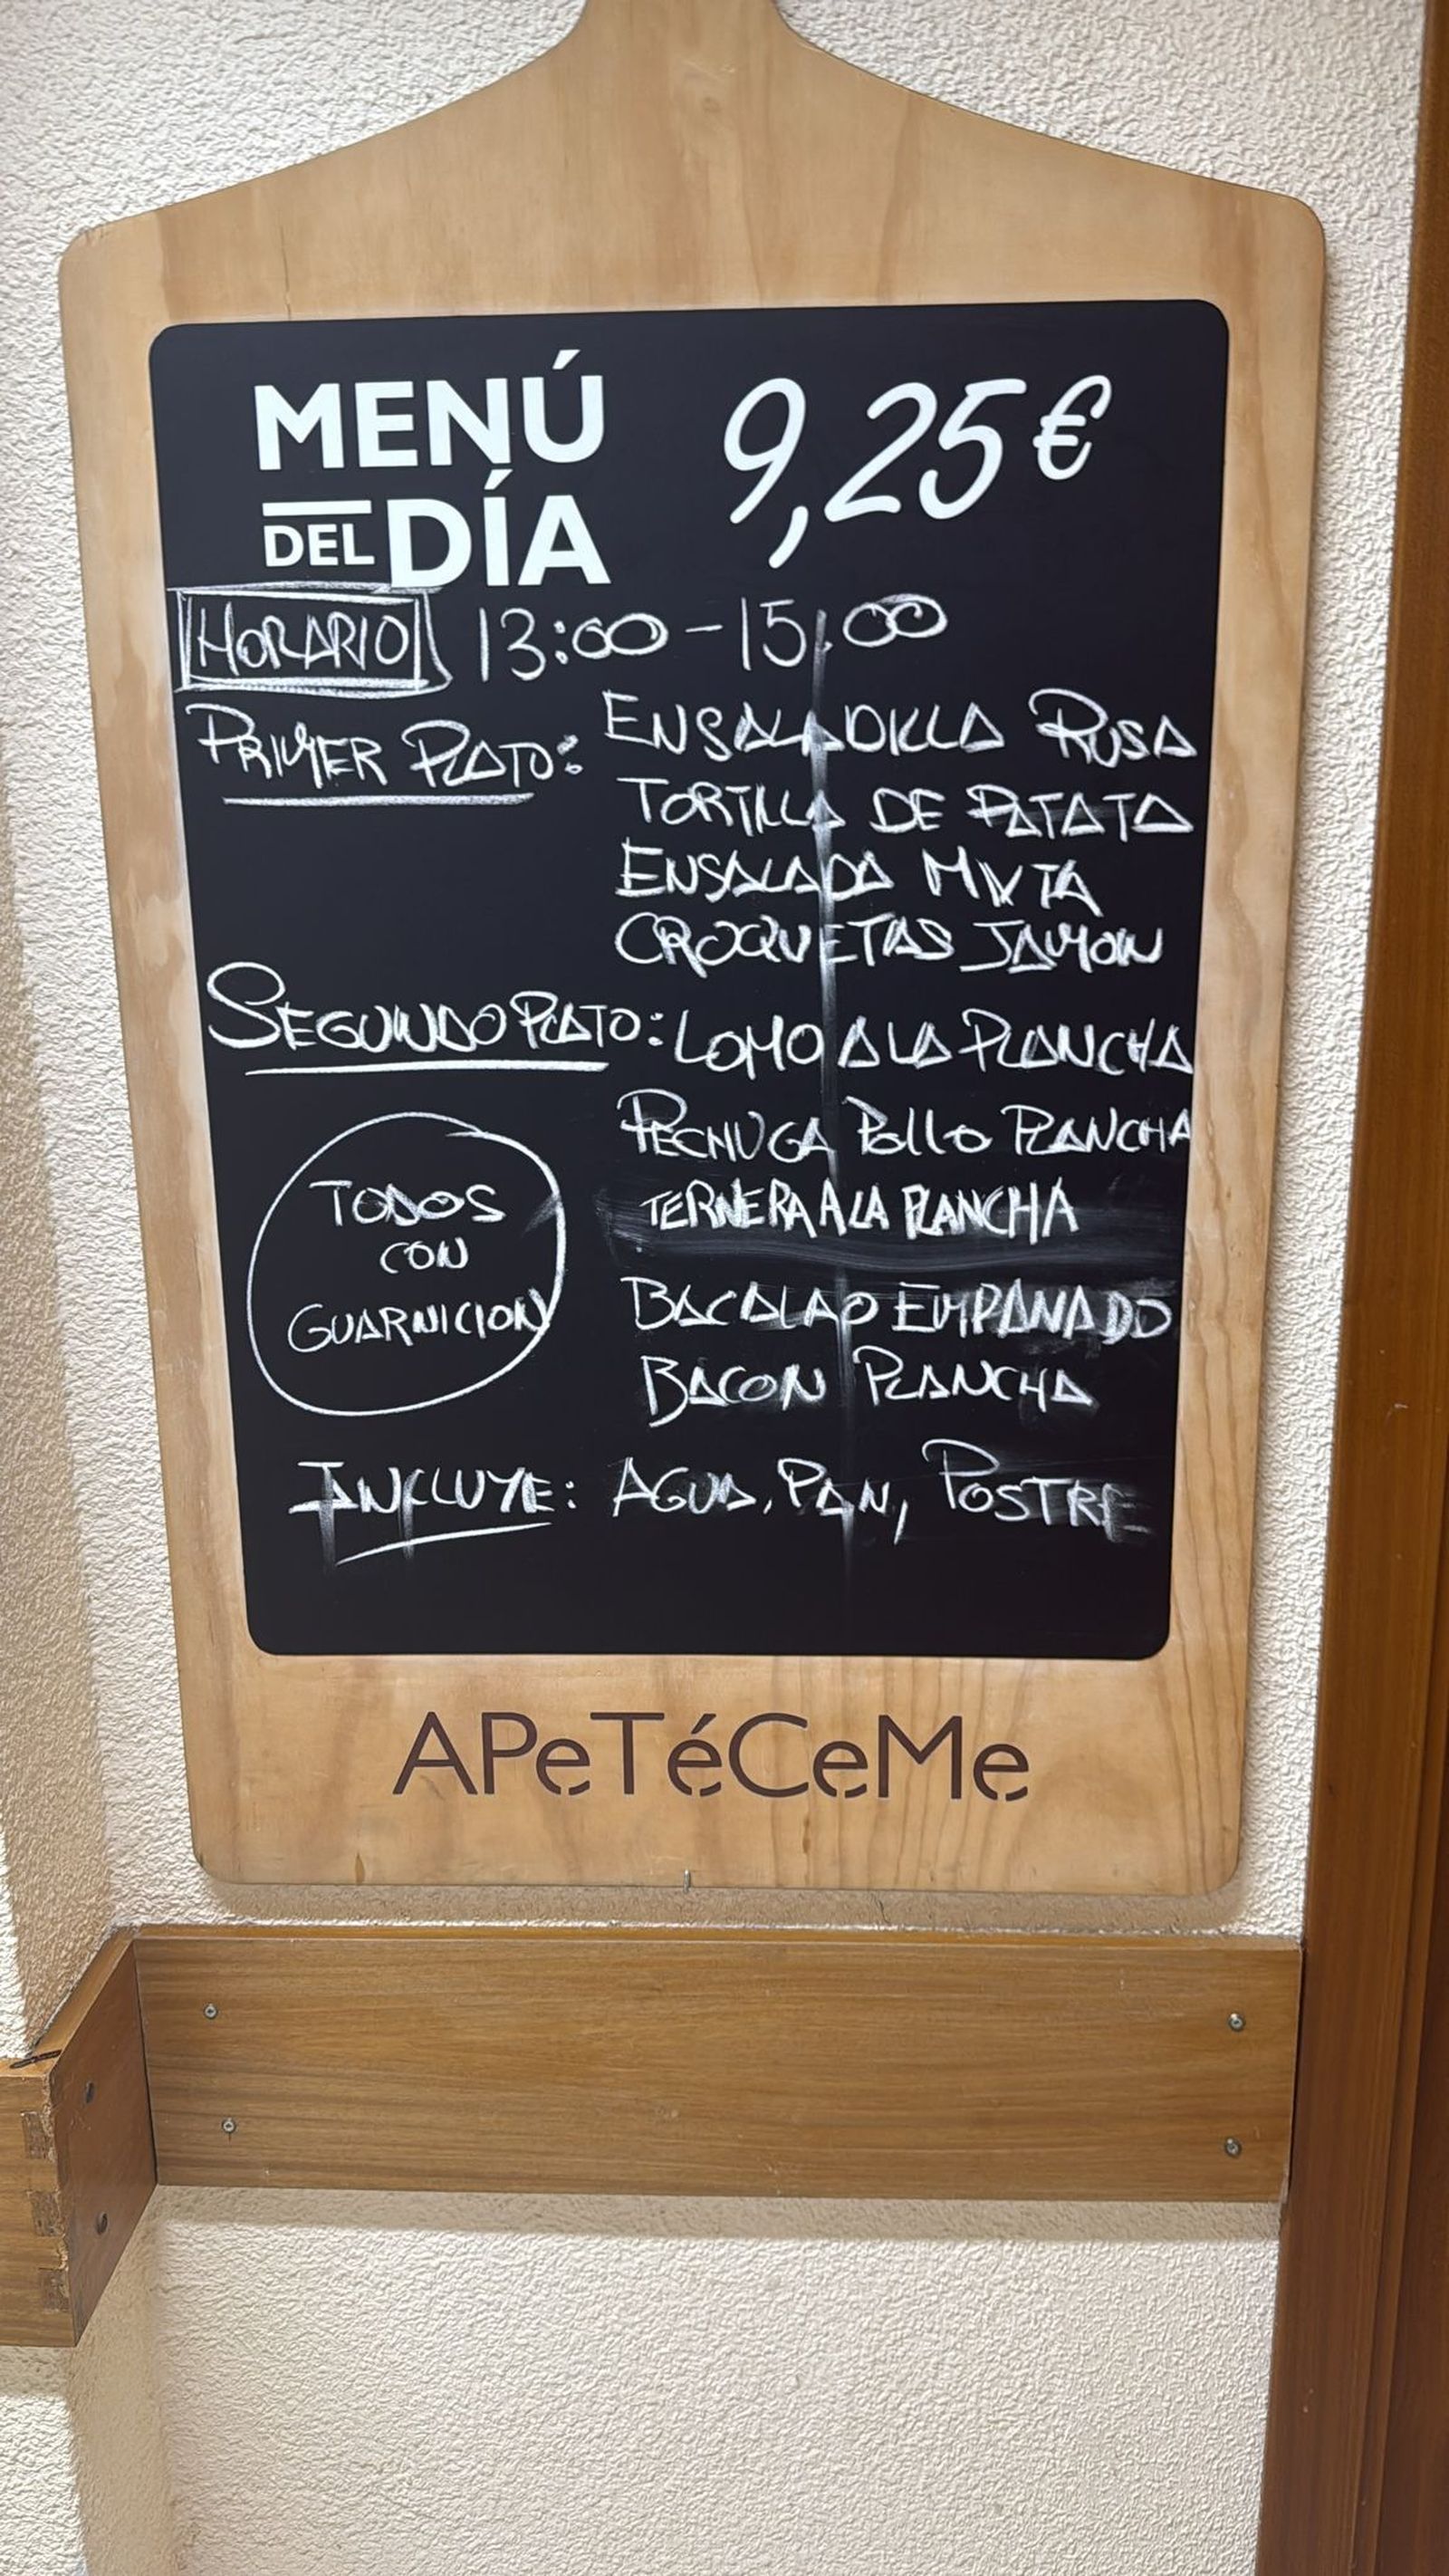 MENÚ
DEL DÍA
9,25€
HORARIO 13:00-15:00
PRIMER PLATO: ENSALADILLA RUSA
TORTILLA DE PATATA
ENSALADA MIXTA
CROQUETAS JAMON
SEGUNDO PLATO: LOMO A LA PLANCHA
PECHUGA Pollo PLANCHA
TERNERA A LA PLANCHA
TODOS
CON
GUARNICION
BACALAO EMPANADO
BACON PLANCHA
INCLUYE: AGUA, PAN, POSTRE
APeTéCeMe